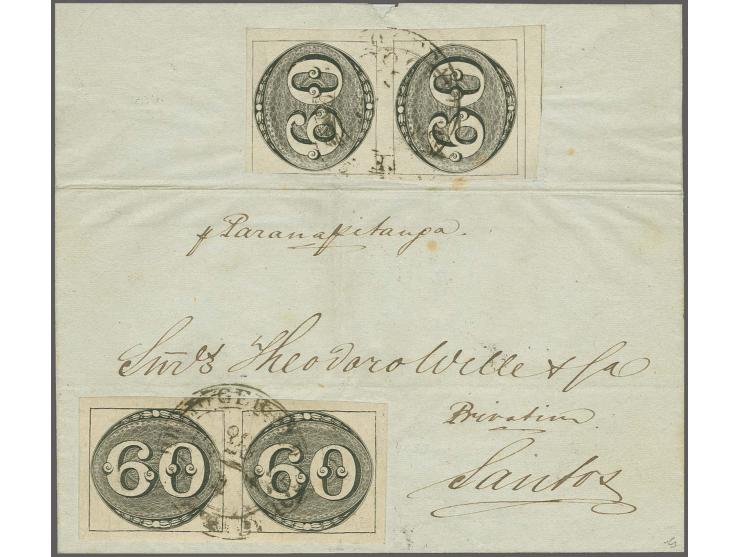 60 60
p Paranapitanga.
Snrs Theodoro Wille & Ca
Privatim
Santos
60 60